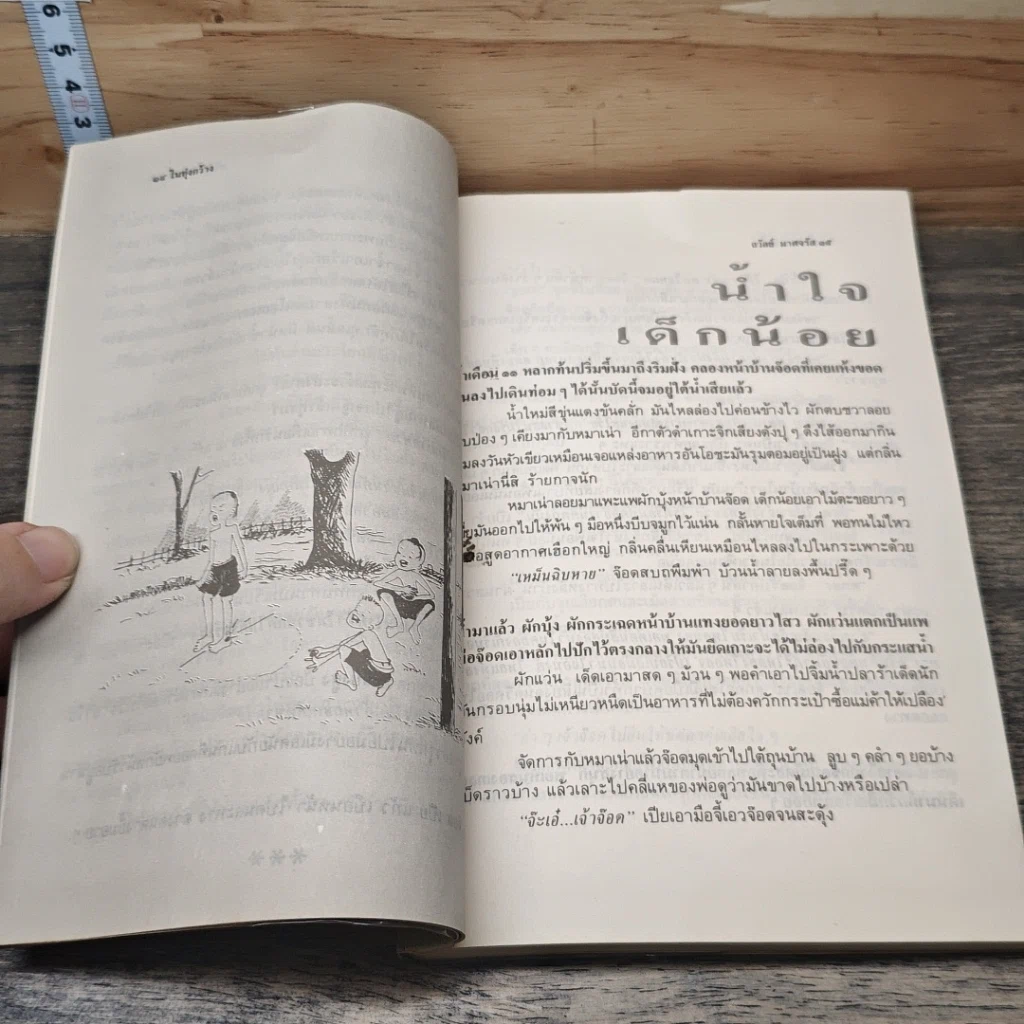 ๒๔ ในทุ่งกว้าง
ถวัลย์ มาศจรัส ๑๕
น้ำใจ
เด็กน้อย
เดือน ๑๑ หลากท้นปริ่มขึ้นมาถึงริมฝั่ง คลองหน้าบ้านจ๊อดที่เคยแห้งขอด
ลงไปเดินท่อม ๆ ได้นั้นบัดนี้จมอยู่ใต้น้ำเสียแล้ว
น้ำใหม่สีขุ่นแดงข้นคลั่ก มันไหลล่องไปค่อนข้างไว ผักตบชวาลอย
ป่อง ๆ เคียงมากับหมาเน่า อีกาตัวดำเกาะจิกเสียงดังปุ ๆ ดึงไส้ออกมากิน
แมลงวันหัวเขียวเหมือนเจอแหล่งอาหารอันโอชะมันรุมตอมอยู่เป็นฝูง แต่กลิ่น
หมาเน่านี่สิ ร้ายกาจนัก
หมาเน่าลอยมาแพะแพผักบุ้งหน้าบ้านจ๊อด เด็กน้อยเอาไม้ตะขอยาว ๆ
มันออกไปให้พ้น ๆ มือหนึ่งบีบจมูกไว้แน่น กลั้นหายใจเต็มที่ พอทนไม่ไหว
สูดอากาศเฮือกใหญ่ กลิ่นคลื่นเหียนเหมือนไหลลงไปในกระเพาะด้วย
“เหม็นฉิบหาย” จ๊อดสบถพึมพำ บ้วนน้ำลายลงพื้นปรี๊ด ๆ
มาแล้ว ผักบุ้ง ผักกระเฉดหน้าบ้านแทงยอดยาวไสว ผักแว่นแตกเป็นแพ
พ่อจ๊อดเอาหลักไปปักไว้ตรงกลางให้มันยึดเกาะจะได้ไม่ล่องไปกับกระแสน้ำ
ผักแว่น เด็ดเอามาสด ๆ ม้วน ๆ พอคำเอาไปจิ้มน้ำปลาร้าเด็ดนัก
มันกรอบนุ่มไม่เหนียวหนืดเป็นอาหารที่ไม่ต้องควักกระเป๋าซื้อแม่ค้าให้เปลือง
ตังค์
จัดการกับหมาเน่าแล้วจ๊อดมุดเข้าไปใต้ถุนบ้าน ลูบ ๆ คลำ ๆ ยอบ้าง
เบ็ดราวบ้าง แล้วเลาะไปคลี่แหของพ่อดูว่ามันขาดไปบ้างหรือเปล่า
“จ๊ะเอ๋...เจ้าจ๊อด” เปียเอามือจี้เอวจ๊อดจนสะดุ้ง
6
5
4
3